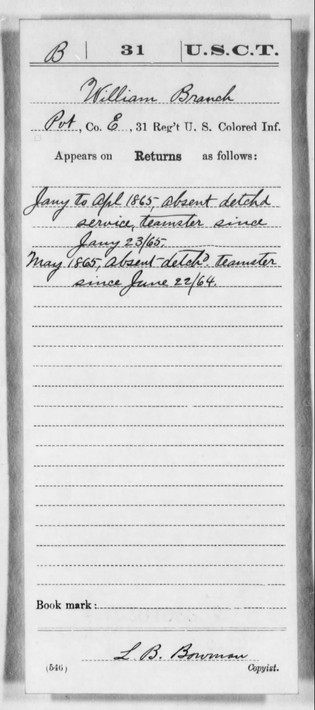 B | 31 | U.S.C.T.
William Branch
Pvt, Co. E, 31 Reg't U. S. Colored Inf.
Appears on Returns as follows:
Jany to Apl 1865, absent detchd
service, teamster since
Jany 23/65.
May 1865, absent detchd. teamster
since June 22/64.
Book mark:
L. B. Bowman
(546) Copyist.